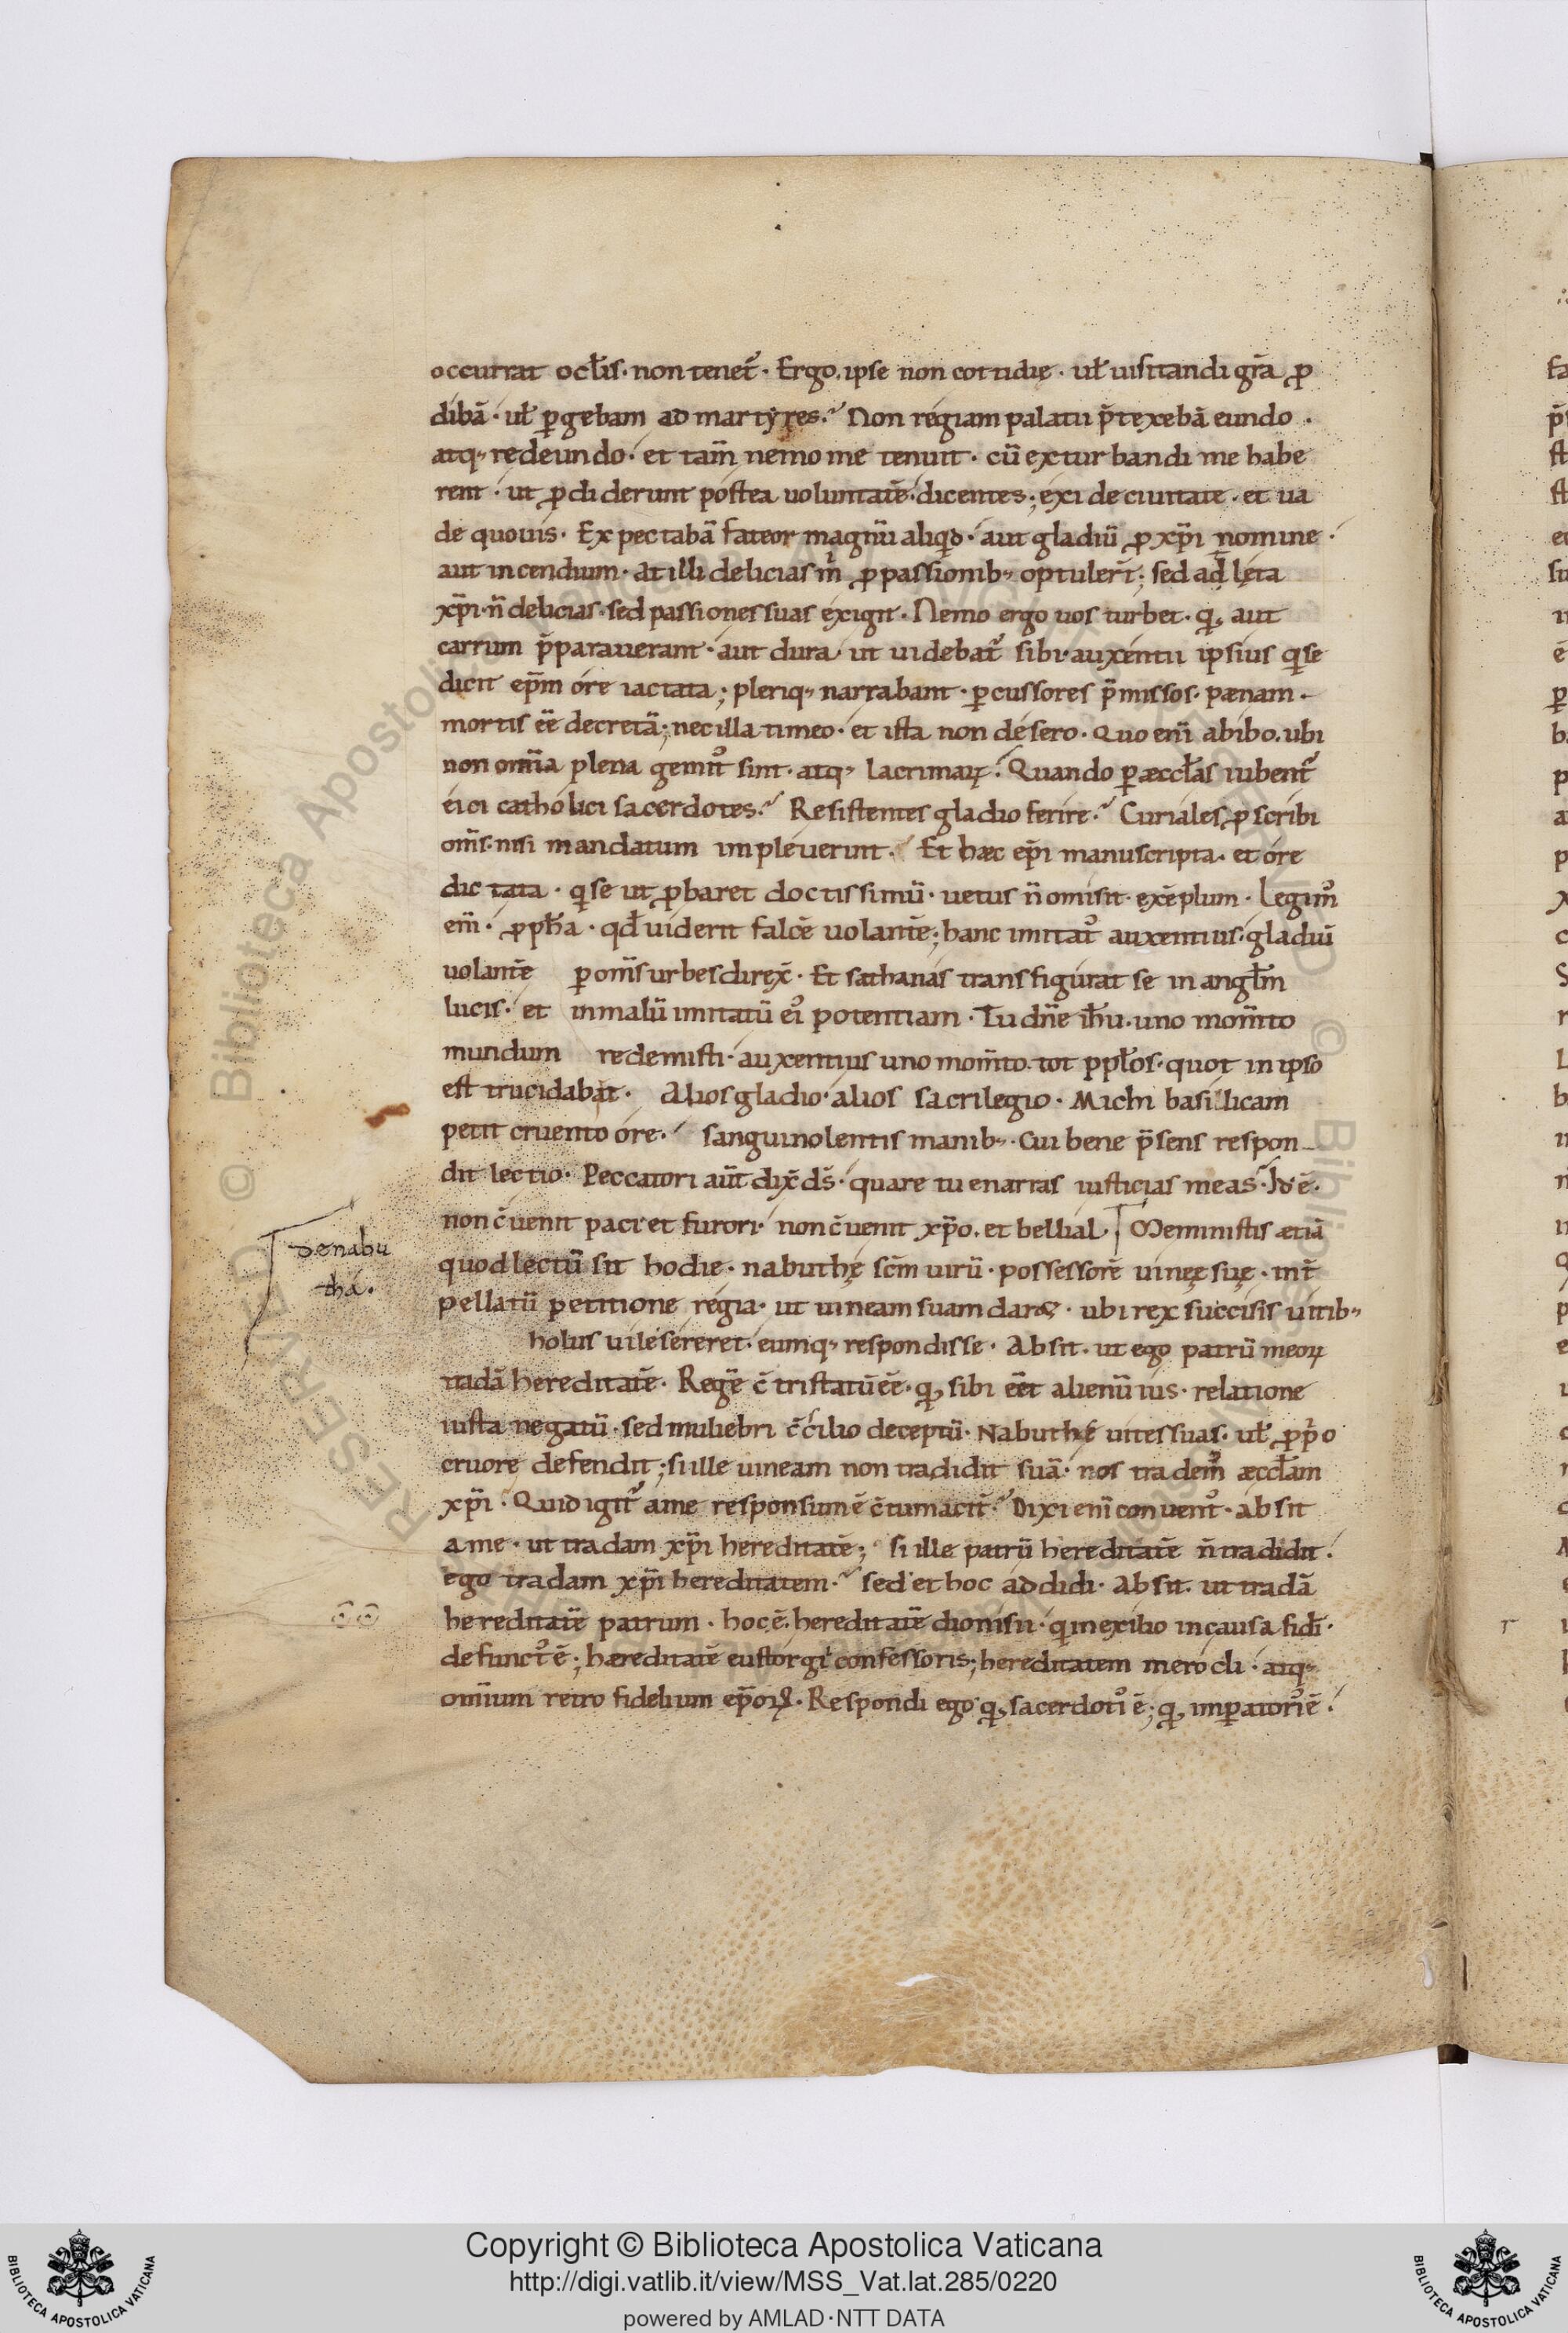 occurrat ocł'is · non tenet᷑ · Ergo . ipse non cottidię · uł uisitandi gr̄a ꝓ
dibā · uł ꝑgebam ad martẏres. Non regiam palatii p̄texebā eundo .
atq; redeundo · et tam̄ nemo me tenuit · cū exturbandi me habe
rent · ut ꝓdiderunt postea uoluntatē · dicentes ; exi de ciuitate · et ua
de quouis · Expectabā fateor magnū aliqd · aut gladiū ꝓ xp̄i nomine ·
aut incendium · at illi delicias m̄ ꝓ passionib; optuler̄t ; sed adł̄eta
xp̄i · n̄ delicias · sed passiones suas exigit · Nemo ergo uos turbet · q, aut
carrum p̄parauerant · aut dura ut uidebat᷑ sibi · auxentii ipsius q se
dicit ep̄m ore iactata ; pleriq; narrabant · ꝑcussores p̄missos · pænam ·
mortis ēē decretā ; nec illa timeo · et ista non desero · Quo eni᷑ abibo . ubi
non omīa plena gemit᷒ sint · atq; lacrimaꝝ · Quando ꝑ æccl̄as iubent᷑
eici catholici sacerdotes. Resistentes gladio ferire. Curiales ꝓscribi
om̄s · nisi mandatum impleuerint. Et hæc ep̄i manuscripta · et ore
dictata · q se ut ꝓbaret doctissimū · uetus n̄ omisit · exēplum · Legim᷒
em̄ · ꝓpħa · qđ uiderit falcē uolantē ; hanc imitat᷒ auxentius · gladiū
uolantē ꝑ om̄s urbes direx̄ · Et sathanas transfigurat se in angl̄m
lucis · et in malū imitatū ei᷒ potentiam · Tu dn̄e ihū . uno mom̄to
mundum redemisti · auxentius uno mom̄to . tot ppl̄os · quot in ipso
est trucidabat · Alios gladio · alios sacrilegio · Michi basilicam
petit cruento ore. sanguinolentis manib; · Cui bene p̄sens respon–
dit lectio · Peccatori aūt dix̄ ds̄ · quare tu enarras iusticias meas · Id ē ·
non c̄uenit paci et furori · non c̄uenit xp̄o . et bellial · Meministis ætiā
quod lectū sit hodie · nabuthę sc̄m uirū · possessorē uineę suę · int̄
pellatū petitione regia · ut uineam suam daret · ubi rex succisis uitib;
holus uile sereret · eumq; respondisse · Absit · ut ego patrū meoꝝ
tradā hereditatē · Regē c̄tristatū ēē · q, sibi eēt alienū ius · relatione
iusta negatū · sed muliebri c̄silio deceptū · Nabuthę uites suas · uł ꝓpo
cruore defendit ; si ille uineam non tradidit suā · nos trademᷓ æccl̄am
xp̄i · Quid igit᷑ a me responsum ē c̄tumacit̄. Dixi eni᷑ conuent᷒ · absit
a me · ut tradam xp̄i hereditatē ; si ille patrū hereditatē n̄ tradidit ·
ego tradam xp̄i hereditatem. sed et hoc addidi · Absit . ut tradā
hereditatē patrum · hoc ē . hereditatē dionisii · q in exilio in causa fidi᷑ ·
defunct᷒ ē ; hæreditatē eustorgii confessoris ; hereditatem merocli · atq;
omnium retro fidelium ep̄oꝝ · Respondi ego q, sacerdoti᷒ ē ; q, imꝑatori᷒ ē ·
de nabu
tha.
Copyright © Biblioteca Apostolica Vaticana
http://digi.vatlib.it/view/MSS_Vat.lat.285/0220
powered by AMLAD·NTT DATA
BIBLIOTECA APOSTOLICA VATICANA
BIBLIOTECA APOSTOLICA VATICANA